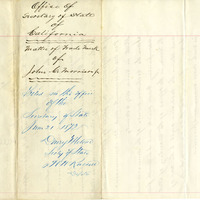 Office of
Secretary of State
of
California
Matter of Trade Mark
of
John C. Morrison Jr
Filed in the office
of the
Secretary of State
June 21 1873
Drury Melone
Secty of State
Deputy